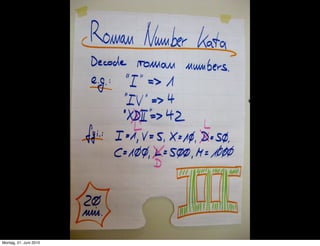 Roman Number Kata
Decode roman numbers.
e.g.: "I" => 1
"IV" => 4
"XDII" => 42
L
fyi.: I=1, V=5, X=10, D=50,
L
C=100, L=500, M=1000
D
20
min.
Montag, 21. Juni 2010